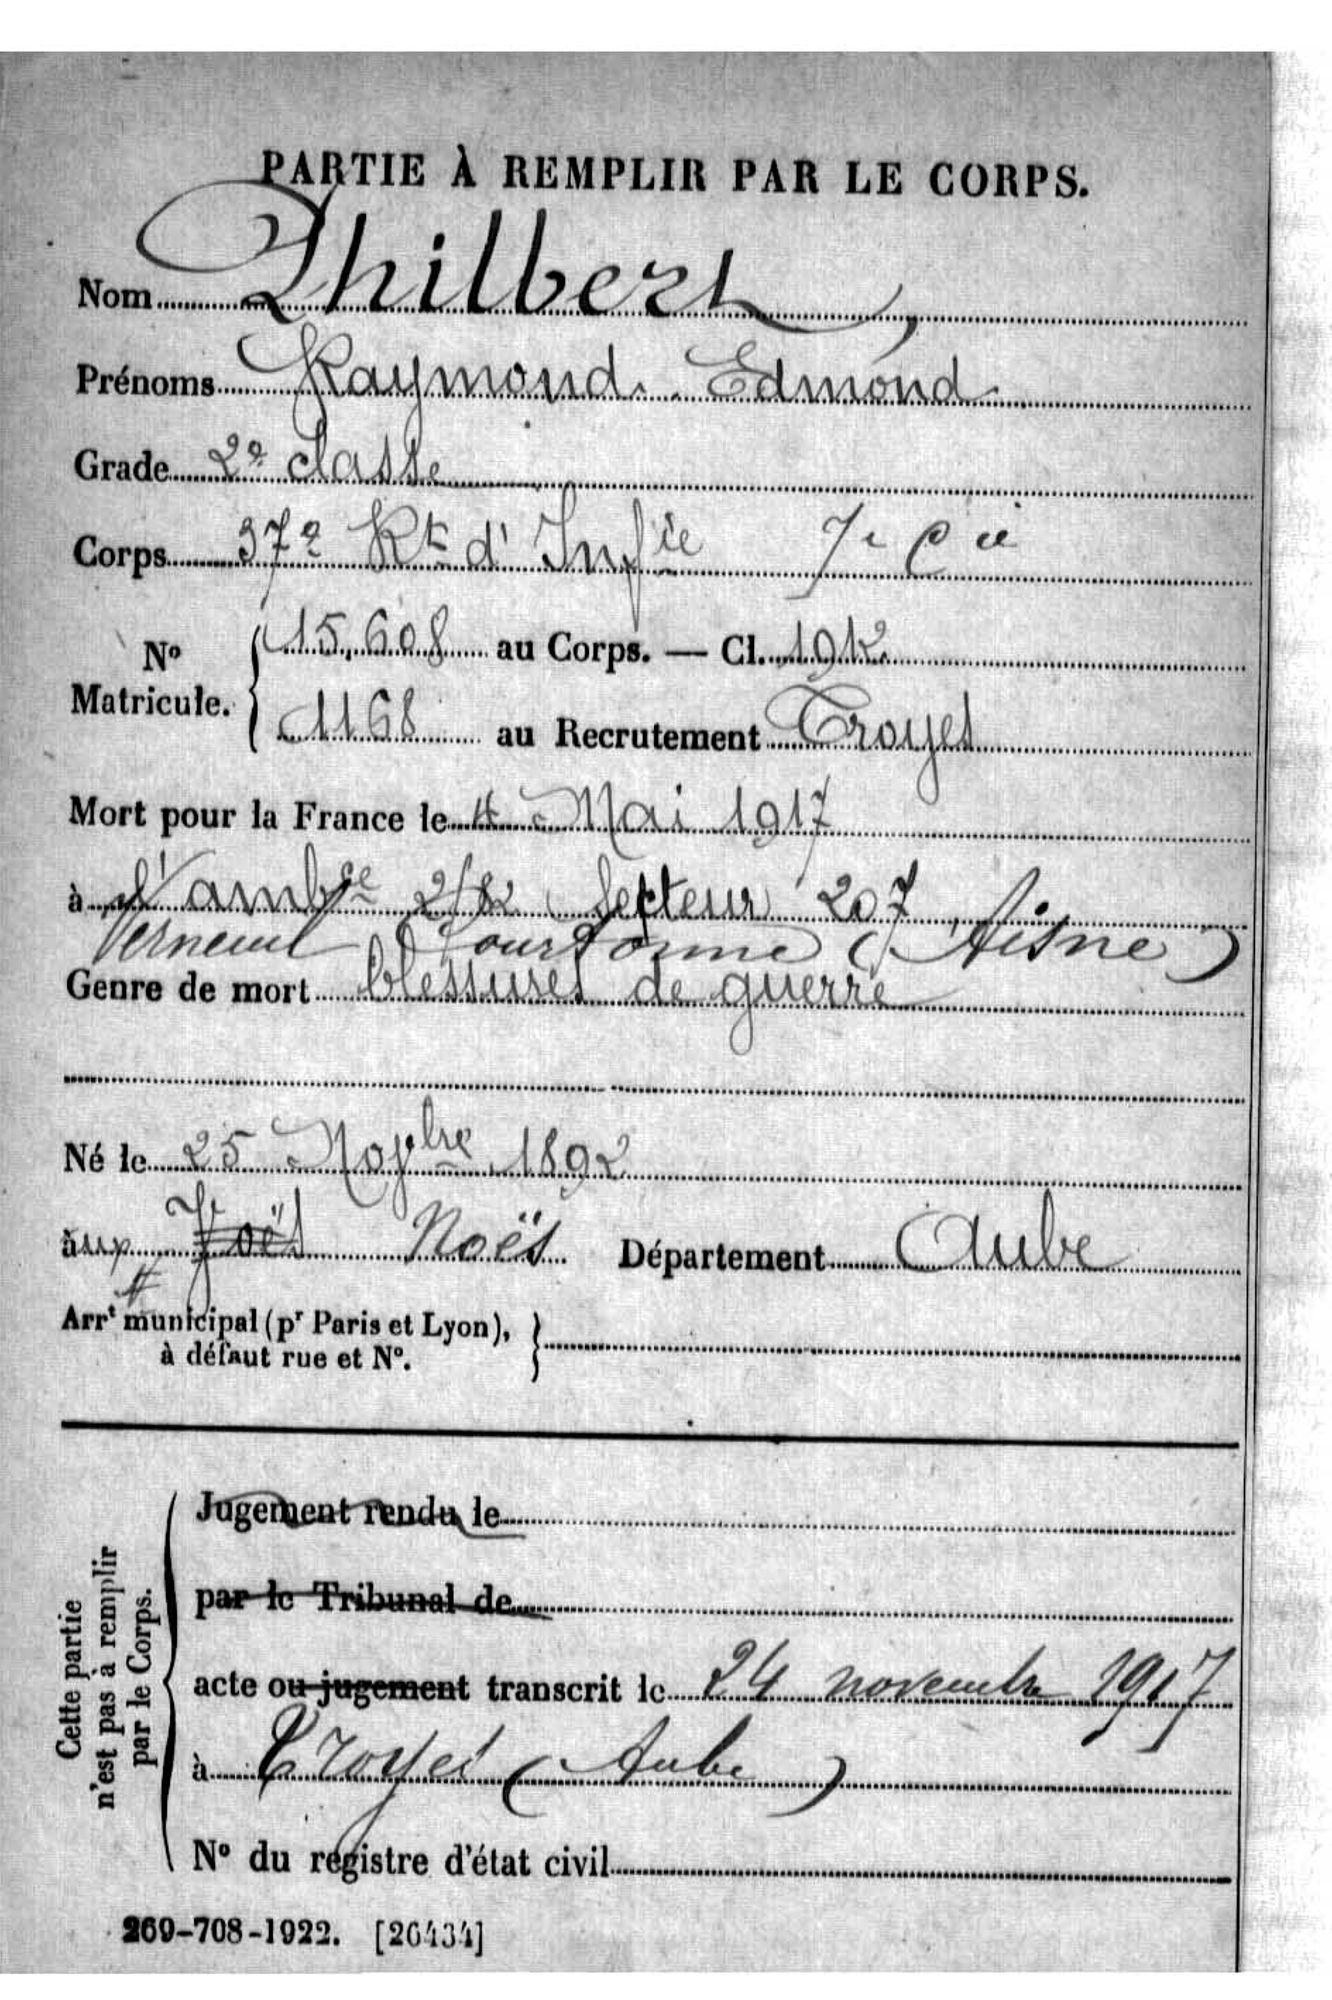 PARTIE À REMPLIR PAR LE CORPS.
Nom Philbert,
Prénoms Raymond Edmond
Grade 2e classe
Corps 37e Rt d'Infie 7e Cie
No Matricule. { 15.608 au Corps. — Cl. 1912
1168 au Recrutement Troyes
Mort pour la France le 4 Mai 1917
à l'ambce 2/82 Secteur 207
Verneuil Courtonne (Aisne)
Genre de mort blessures de guerre
Né le 25 Novbre 1892
aux Noës Département Aube
Arrt municipal (pr Paris et Lyon), à défaut rue et No. }
Cette partie n'est pas à remplir par le Corps.
Jugement rendu le
par le Tribunal de
acte ou jugement transcrit le 24 novembre 1917
à Troyes (Aube)
No du registre d'état civil
269-708-1922. [26434]